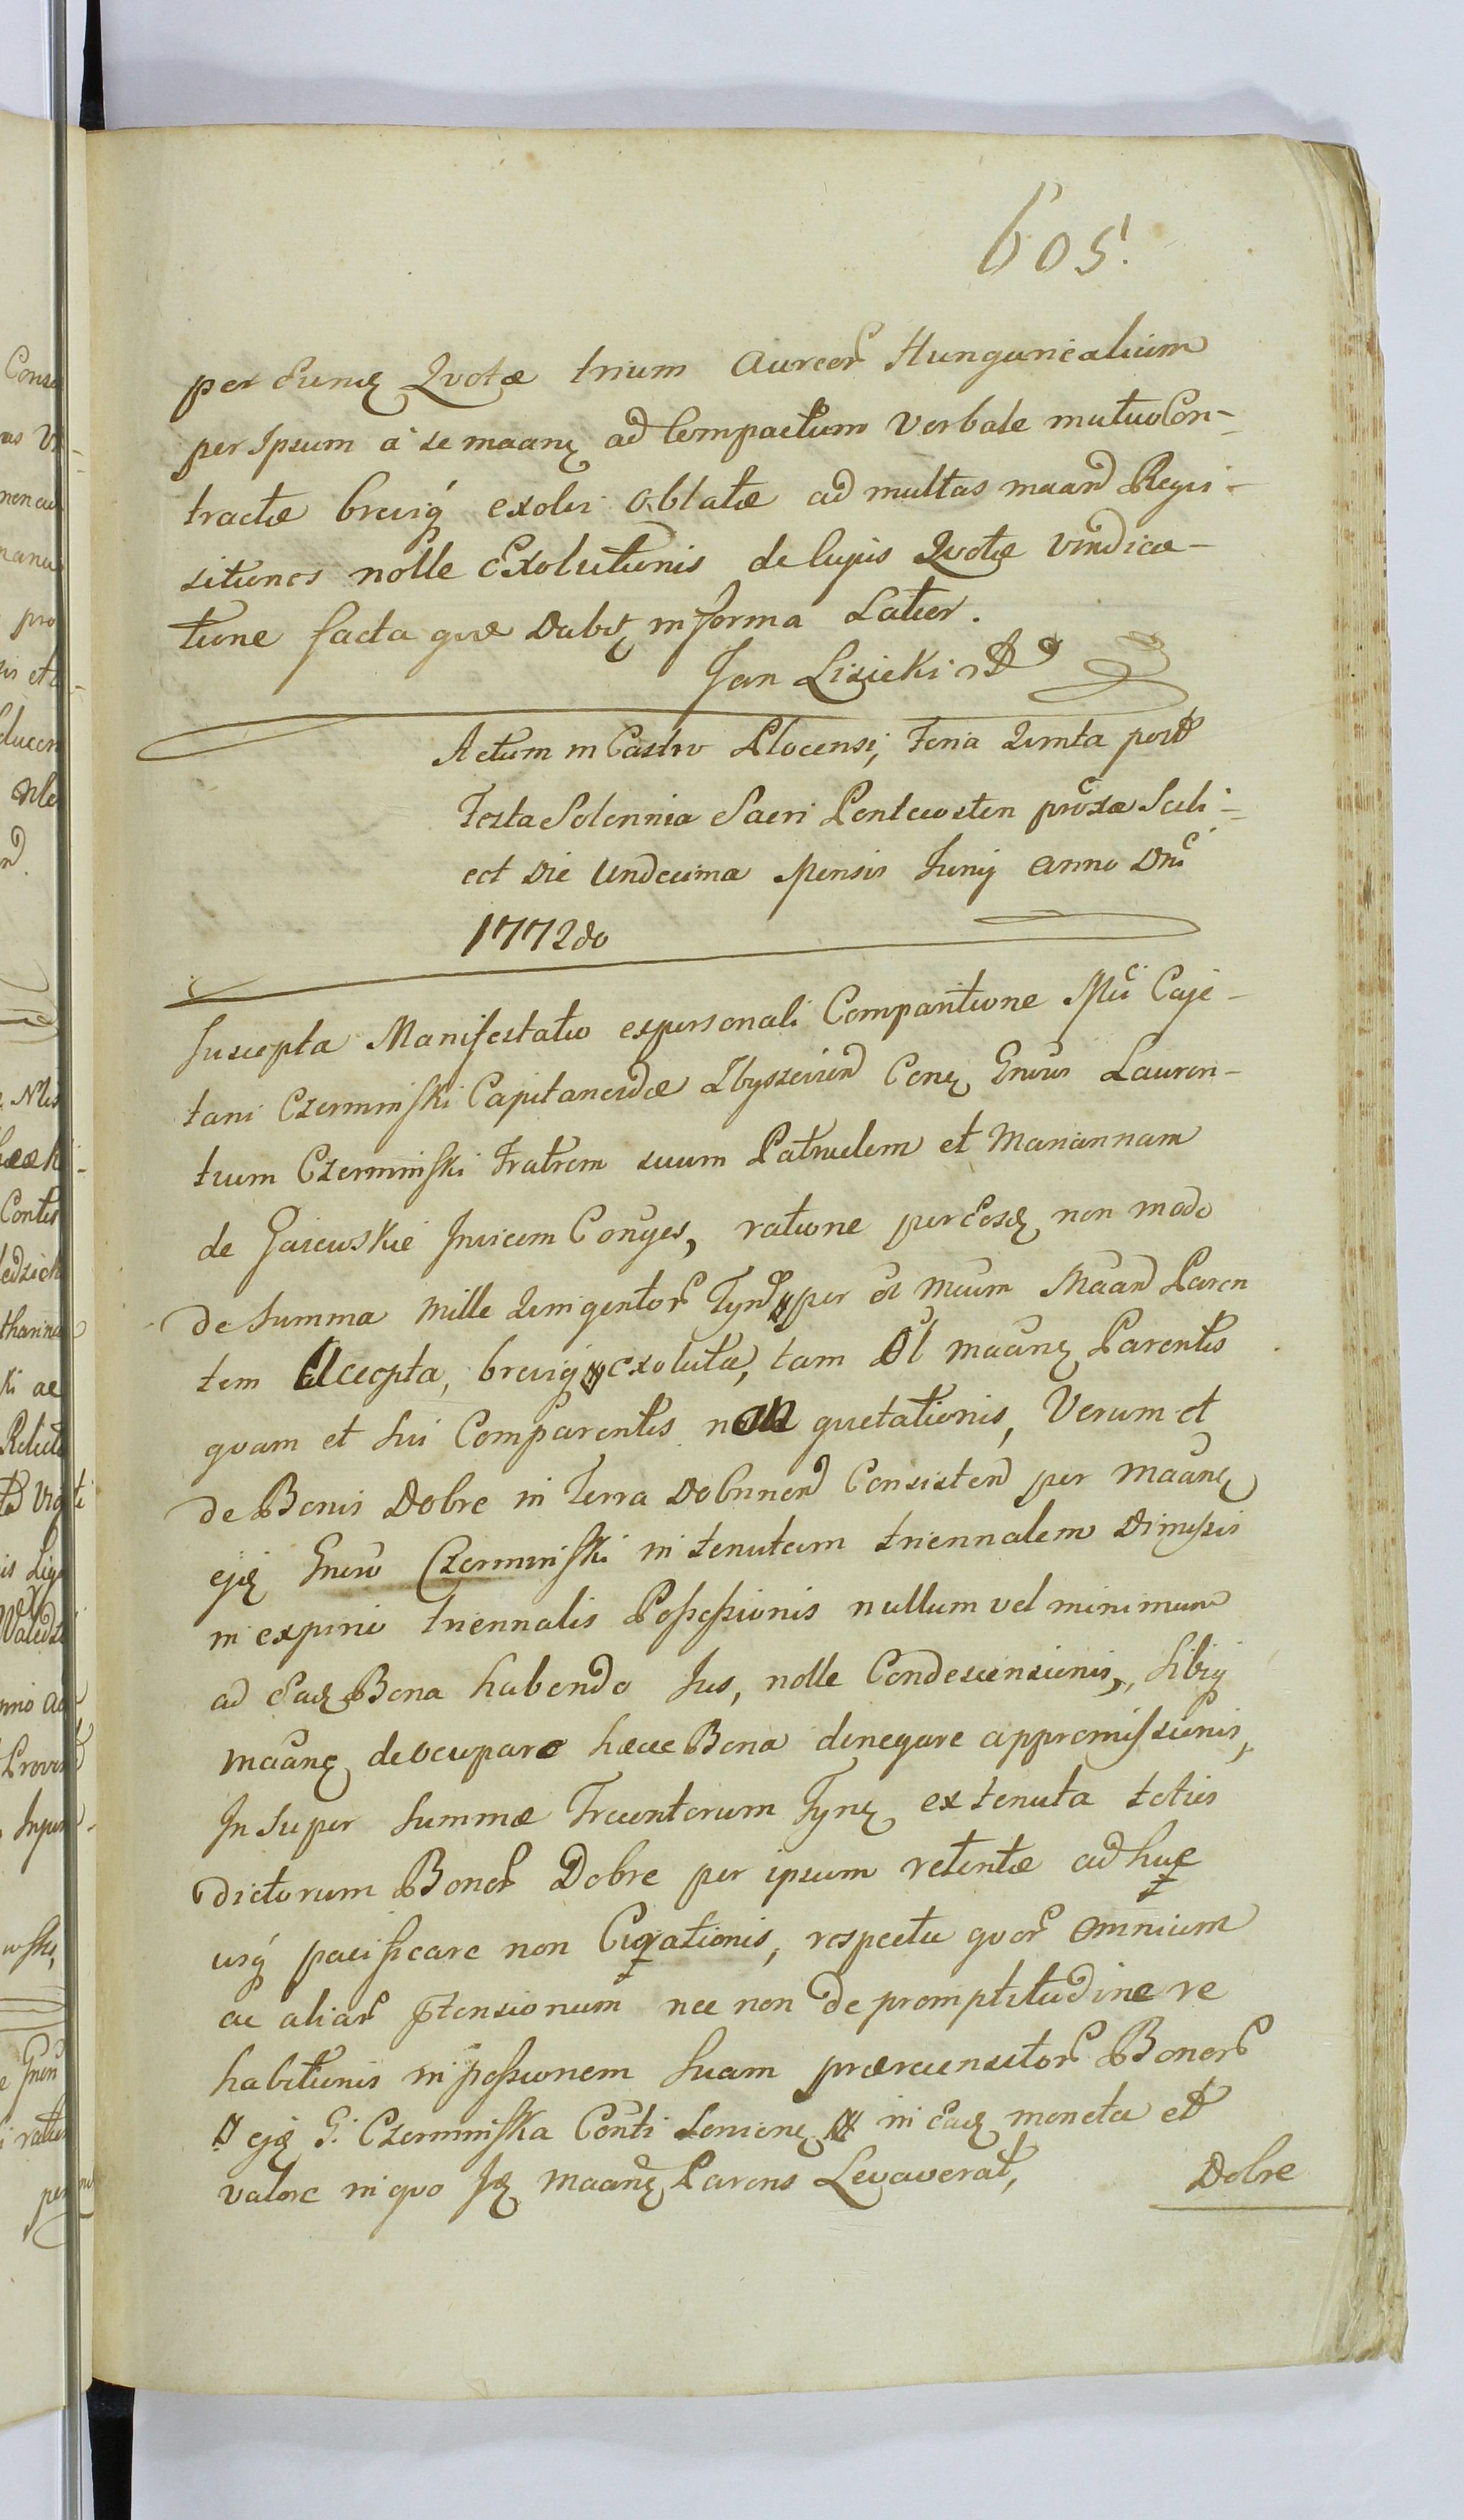 605.
per Eund Quotæ trium Aureor Hungaricalium
per Ipsum à se maand ad Compactum Verbale mutuo Con-
tractæ brevig exolvi Oblatæ ad multas maand Regui-
sitiones nolle Exolutionis de cujus Quotæ Vindica-
tione facta quæ Dabit in forma Latior.
Jan Lisicki
Actum in Castro Plocensi, Feria Quinta post
Festa Solennia Sacri Pentecosten proxa Scili-
cet Die Undecima Mensis Junij Anno Dni
1772do
Suscepta Manifestatio ex personali Comparitione Mci Caje-
tani Czerminski Capitaneidæ Zbyszevien Cons Gnosos Lauren-
tium Czerminski Fratrem suum Patruelem et Mariannam
de Gajewskie Invicem Conges, ratione per Eosd non modo
de Summa Mille Quingentor Fynd per ol Mcum Maand Paren
tem Accepta, brevig exoluta, tam Ol maand Parentis
quam et Sui Comparentis non quietationis, Verum et
de Bonis Dobre in Terra Dobrinen Consisten per maand
ejq Gnoso Czerminski in tenutam triennalem Dimissis
in expirio triennalis Possessionis nullum vel minimum
ad Ead Bona habendo Jus, nolle Condescensionis, Sibiq
maand deocupare hæce Bona denegare appromissionis,
In super Summæ Trecentorum Fynd ex tenuta toties
dictorum Bonor Dobre per ipsum retentæ ad huc
usq pacificare non Curationis, respectu quor Omnium
ac aliar ptensionum nec non de promptitudine re
habitionis in possionem Suam prærecensitor Bonor
ejq G. Czerminska Conti in Ead moneta et
valore in quo Id Maand Parens Levaverat,
Dobre